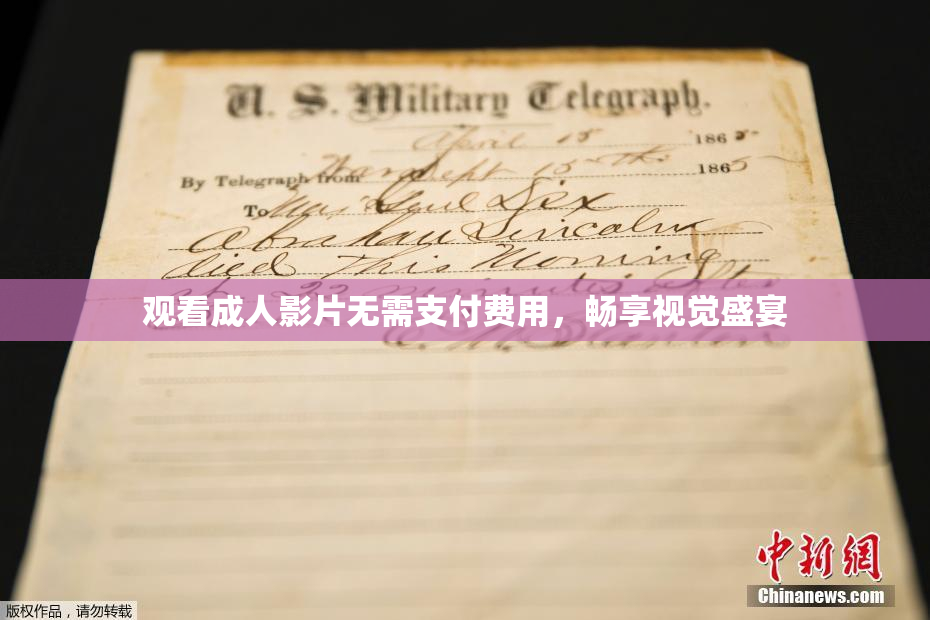 U. S. Military Telegraph.
April 15 1865
By Telegraph from War Dept 15th 1865
To Maj Genl Dix
Abraham Lincoln
died This Morning
at 22 minutes after
观看成人影片无需支付费用，畅享视觉盛宴
E. M. Stanton
中新网
Chinanews.com
版权作品，请勿转载